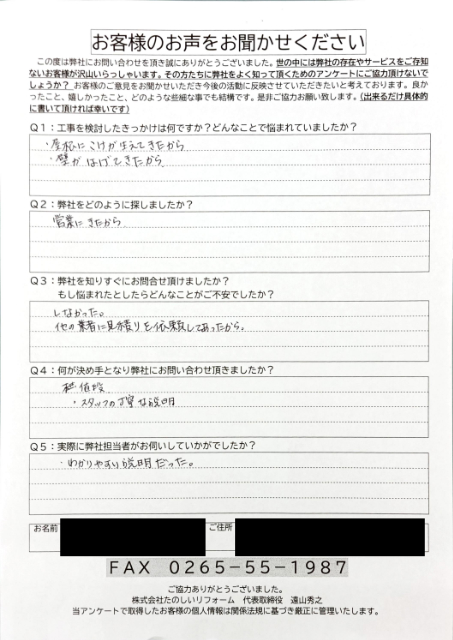 お客様のお声をお聞かせください
この度は弊社にお問い合わせを頂き誠にありがとうございました。世の中には弊社の存在やサービスをご存知
ないお客様が沢山いらっしゃいます。その方たちに弊社をよく知って頂くためのアンケートにご協力頂けないで
しょうか？ お客様のご意見をお聞かせいただき今後の活動に反映させていただきたいと考えております。良か
ったこと、嬉しかったこと、どのような些細な事でも結構です。是非ご協力お願い致します。(出来るだけ具体的
に書いて頂ければ幸いです)
Q1：工事を検討したきっかけは何ですか？どんなことで悩まれていましたか？
・屋根にこけが生えてきたから
・壁がはげてきたから
Q2：弊社をどのように探しましたか？
営業にきたから
Q3：弊社を知りすぐにお問合せ頂けましたか？
もし悩まれたとしたらどんなことがご不安でしたか？
しなかった。
他の業者に見積りを依頼してあったから。
Q4：何が決め手となり弊社にお問い合わせ頂きましたか？
値段
・スタッフの丁寧な説明
Q5：実際に弊社担当者がお伺いしていかがでしたか？
・わかりやすい説明だった。
お名前 ご住所
FAX 0265-55-1987
ご協力ありがとうございました。
株式会社たのしいリフォーム 代表取締役 遠山秀之
当アンケートで取得したお客様の個人情報は関係法規に基づき厳正に管理いたします。